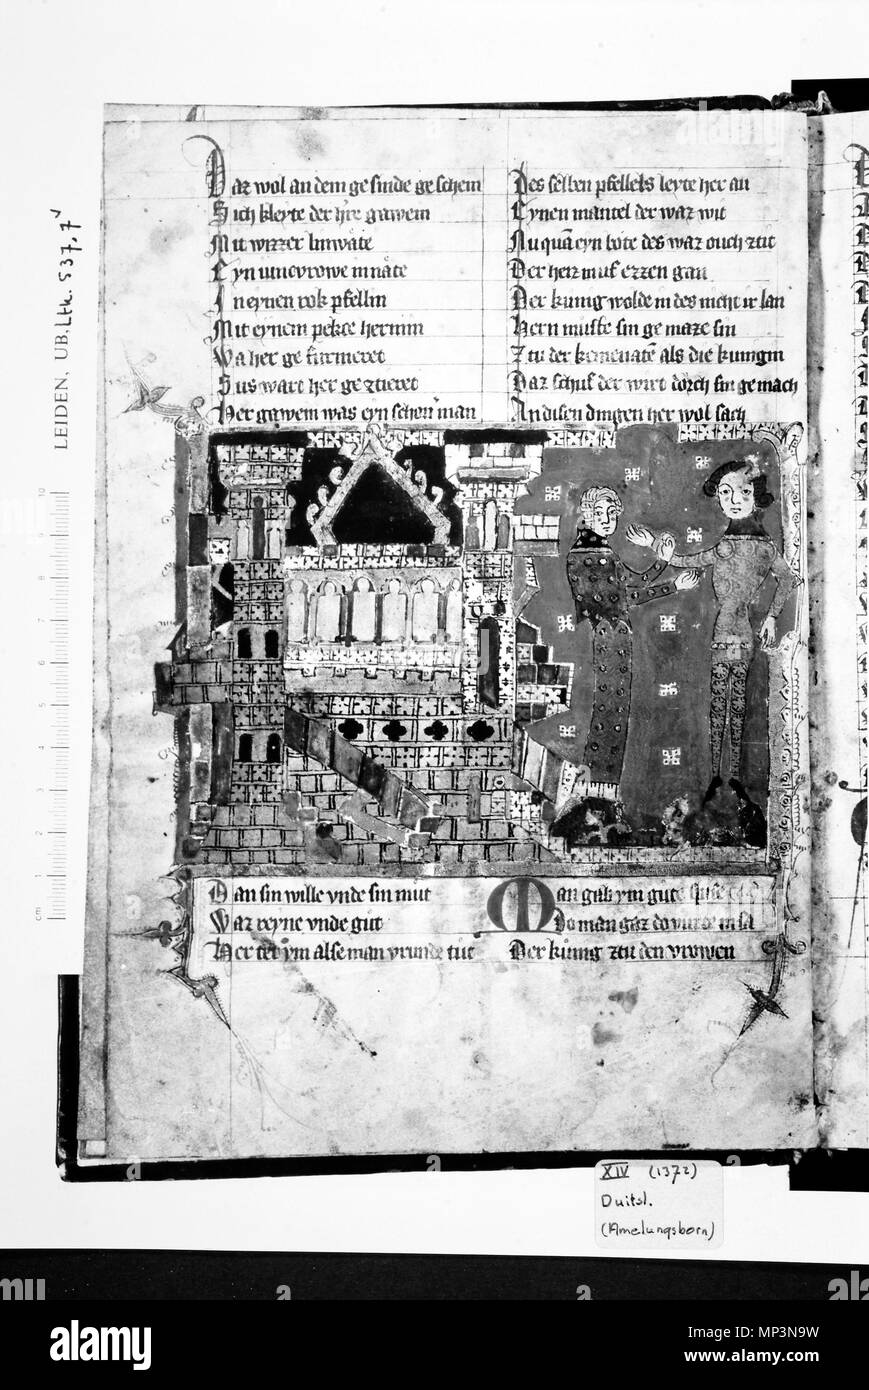 LEIDEN, UB. Ltk. 537, 7v
Daz wol an dem ge sinde ge schein
Sich kleyte der hre gawein
Mit wizzer linwate
Eyn iuncvrowe in nate
In eynen rok pfellin
Mit eynem pelcze hermin
Wa her ge furrieret
Sus wart her ge ztieret
Her gawein was eyn schon man
Des selben pfellels leyte her an
Eynen mantel der waz wit
Nu qua eyn bote des waz ouch ztit
Der hiez in uf ezzen gan
Der kunig wolde in des nicht ir lan
Hern muste sin ge maze sin
Ztu der kemenate als die kunigin
Daz schuf der wirt dorch sin ge mach
An disen dingen her wol sach
Daz sin wille vnde sin mut
Waz reyne vnde gut
Her tet ym alse man vrunde tut
Man gab ym gute spise
Do man gaz do vurte in sa
Der kunig ztu den vrowen
cm 1 2 3 4 5 6 7 8 9 10
XIV (1372)
Duitsl.
(Amelungsborn)
alamy
Image ID: MP3N9W
www.alamy.com